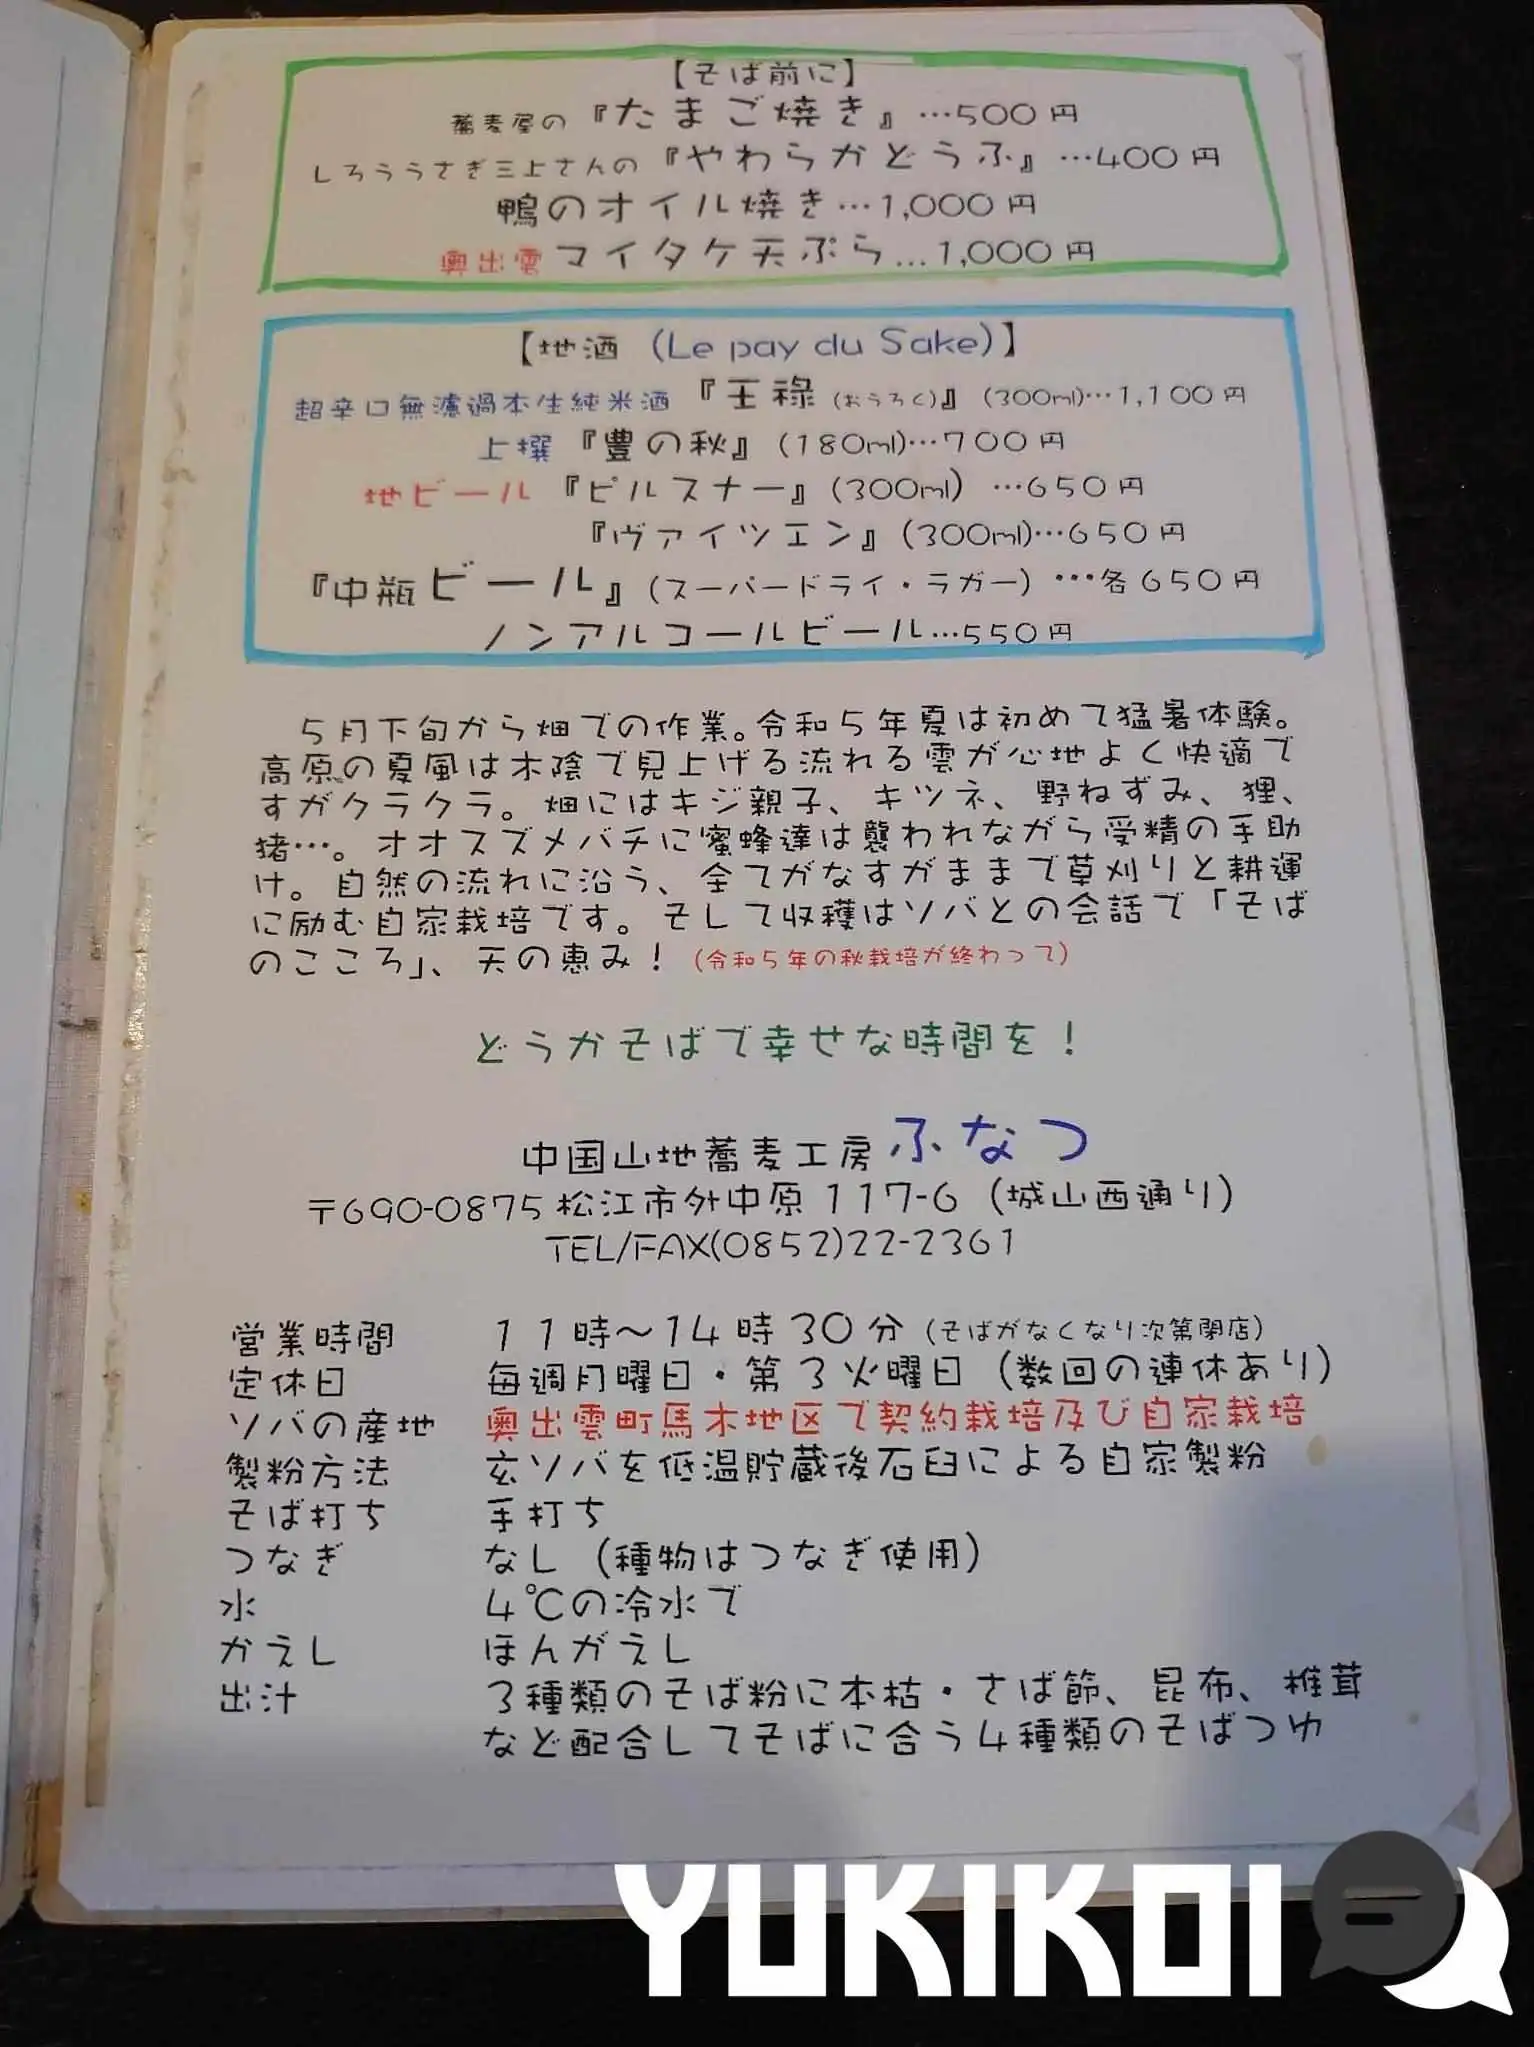 【そば前に】
蕎麦屋の『たまご焼き』…500円
しろううさぎ三上さんの『やわらかどうふ』…400円
鴨のオイル焼き…1,000円
奥出雲マイタケ天ぷら…1,000円
【地酒 (Le pay du Sake)】
超辛口無濾過本生純米酒『王祿(おうろく)』(300ml)…1,100円
上撰『豊の秋』(180ml)…700円
地ビール『ピルスナー』(300ml) …650円
『ヴァイツエン』(300ml)…650円
『中瓶ビール』(スーパードライ・ラガー) …各650円
ノンアルコールビール…550円
5月下旬から畑での作業。令和5年夏は初めて猛暑体験。
高原の夏風は木陰で見上げる流れる雲が心地よく快適で
すがクラクラ。畑にはキジ親子、キツネ、野ねずみ、狸、
猪…。オオスズメバチに蜜蜂達は襲われながら受精の手助
け。自然の流れに沿う、全てがなすがままで草刈りと耕運
に励む自家栽培です。そして収穫はソバとの会話で「そば
のこころ」、天の恵み！(令和5年の秋栽培が終わって)
どうかそばで幸せな時間を！
中国山地蕎麦工房ふなつ
〒690-0875松江市外中原117-6 (城山西通り)
TEL/FAX(0852)22-2361
営業時間 11時～14時30分(そばがなくなり次第閉店)
定休日 毎週月曜日・第3火曜日(数回の連休あり)
ソバの産地 奥出雲町馬木地区で契約栽培及び自家栽培
製粉方法 玄ソバを低温貯蔵後石臼による自家製粉
そば打ち 手打ち
つなぎ なし(種物はつなぎ使用)
水 4℃の冷水で
かえし ほんがえし
出汁 3種類のそば粉に本枯・さば節、昆布、椎茸
など配合してそばに合う4種類のそばつゆ
YUKIKOI